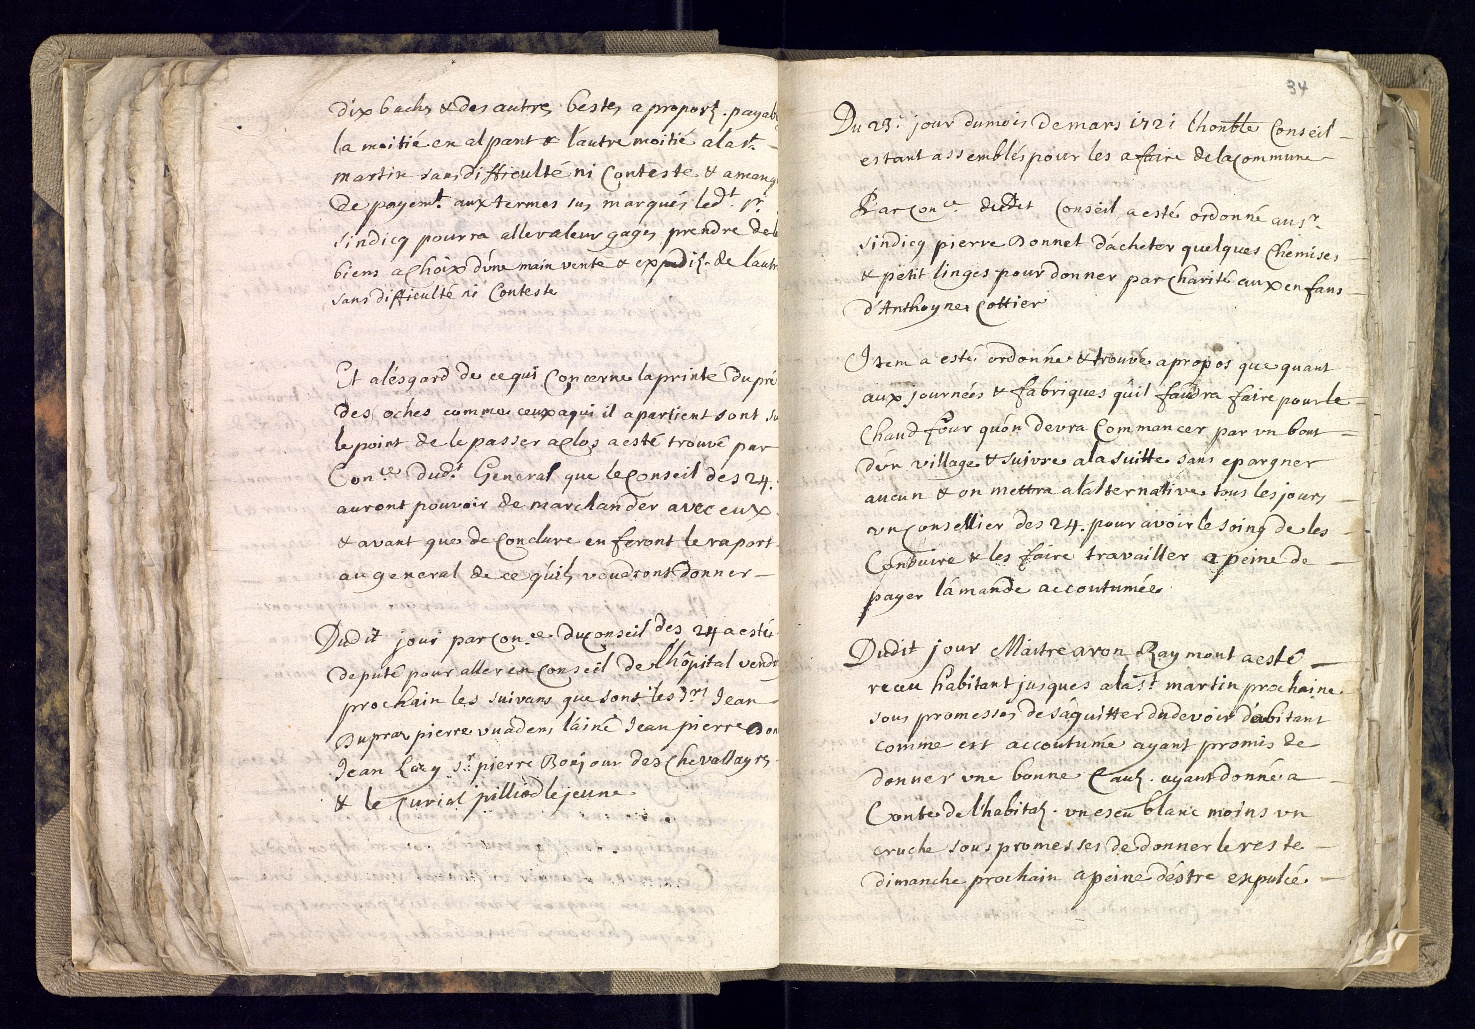 dix bachs & des autres bestes a proport. payab
la moitié en alpant & lautre moitié a la St.
martin sans difficulté ni Conteste & a manq
de payemt. aux termes sus marqués ledt. Sr.
sindicq pourra allevaleur gages prendre de
biens a choix d'une main vente & expedit. de lautr
sans difficulté ni Conteste
Et alésgard de ce qui Concerne la printé du pré
des oches comme ceux a qui il apartient sont su
le point de le passer a clos a esté trouvé par
Conce. dudt. General que le Conseil des 24.
auront pouvoir de marchander avec eux
& avant que de Conclure en feront le raport
au general de ce qúils voudront donner
Dudit jour par Conce. du Conseil des 24 a esté
deputé pour aller en Conseil de l'hôpital vend
prochain les suivans que sont les Srs. Jean
Dupraz pierre vuadens lainé Jean pierre Don
Jean Luzy Sr. pierre Bonjour des Chevallayrs
& le Curial pilliod le jeune
34
Du 23e. jour du mois de mars 1721 l'honble Conseil
estant assemblés pour les affaire de la Commune
Par Conce. dudit Conseil a esté ordonné au Sr.
sindicq pierre Donnet d'acheter quelques Chemises
& petit linges pour donner par Charité aux enfans
d'Anthoyne Cottier
Item a esté ordonné & trouvé apropos que quant
aux journées & fabriques qúil faudra faire pour le
Chaud four quón devra Commancer par un bout
dún village & suivre a la suitte sans epargner
aucun & on mettra a lalternative tous les jours
un Consellier des 24. pour avoir le soing de les
Conduire & les faire travailler a peine de
payer lámande accoutumée
Dudit jour Maitre aron Raymont a esté
receu habitant jusques a la St. martin prochaine
sous promesses de sáquitter du devoir d'abitant
comme est accoutumé ayant promis de
donner une bonne Caut. ayant donné a
Conte de l'habitat. un escu blanc moins un
cruche sous promesses de donner le reste
dimanche prochain a peine déstre expulcé